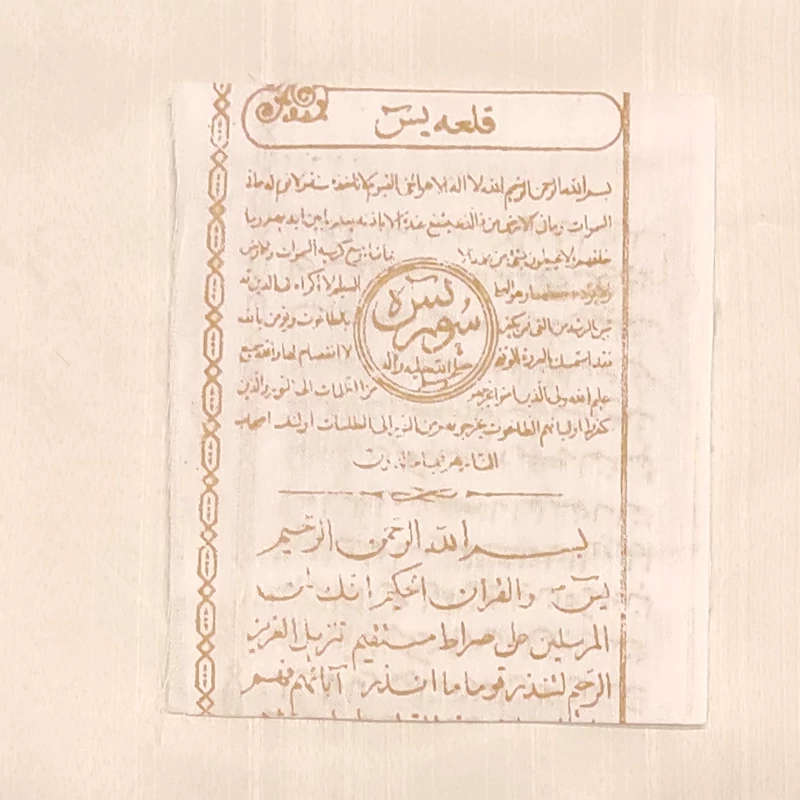 قلعه يس
بسم الله الرحمن الرحيم الله لا اله الا هو الحي القيوم لا تاخذه سنة ولا نوم له ما في
السموات وما في الارض من ذا الذي يشفع عنده الا باذنه يعلم ما بين ايديهم وما
خلفهم ولا يحيطون بشئ من علمه الا بما شاء وسع كرسيه السموات والارض
وهو العلي العظيم لا اكراه في الدين قد
تبين الرشد من الغي فمن يكفر بالطاغوت ويؤمن بالله
فقد استمسك بالعروة الوثقى لا انفصام لها والله سميع
عليم الله ولي الذين امنوا يخرجهم من الظلمات الى النور والذين
كفروا اوليائهم الطاغوت يخرجونهم من النور الى الظلمات اولئك اصحاب
النار هم فيها خالدون
سورة يس
صلى الله عليه واله
بسم الله الرحمن الرحيم
يس والقران الحكيم انك لمن
المرسلين على صراط مستقيم تنزيل العزيز
الرحيم لتنذر قوما ما انذر آبائهم فهم